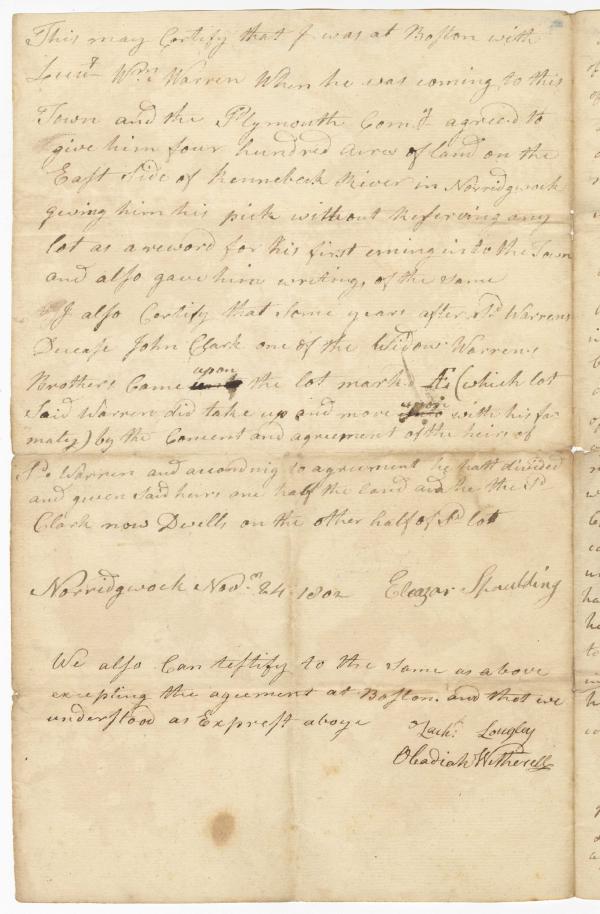 This may Certify that I was at Boston with
Lieut Wm Warren When he was coming to this
Town and the Plymouth Comy agreed to
give him four hundred acres of land on the
East Side of Kennebeck River in Norridgwock
giving him his pick without Reserving any
lot as a reword for his first coming into the Town
and also gave him writings of the same
I also Certify that Some years after Sd Warrens
Decease John Clark one of the Widow Warrens
Brothers Came upon the lot marked (which lot
Said Warren did take up and move upon with his fa
maly) by the Consent and agreement of the heirs of
Sd Warren and according to agreement he hath divided
and given said heirs one half the land and he the Sd
Clark now Dwells on the other half of Sd lot
Norridgwock Novm 24 1802 Eleazar Spaulding
We also Can testify to the same as above
excepting the agreement at Boston and that we
understood as Exprest above
Zachh Longley
Obadiah Witherell